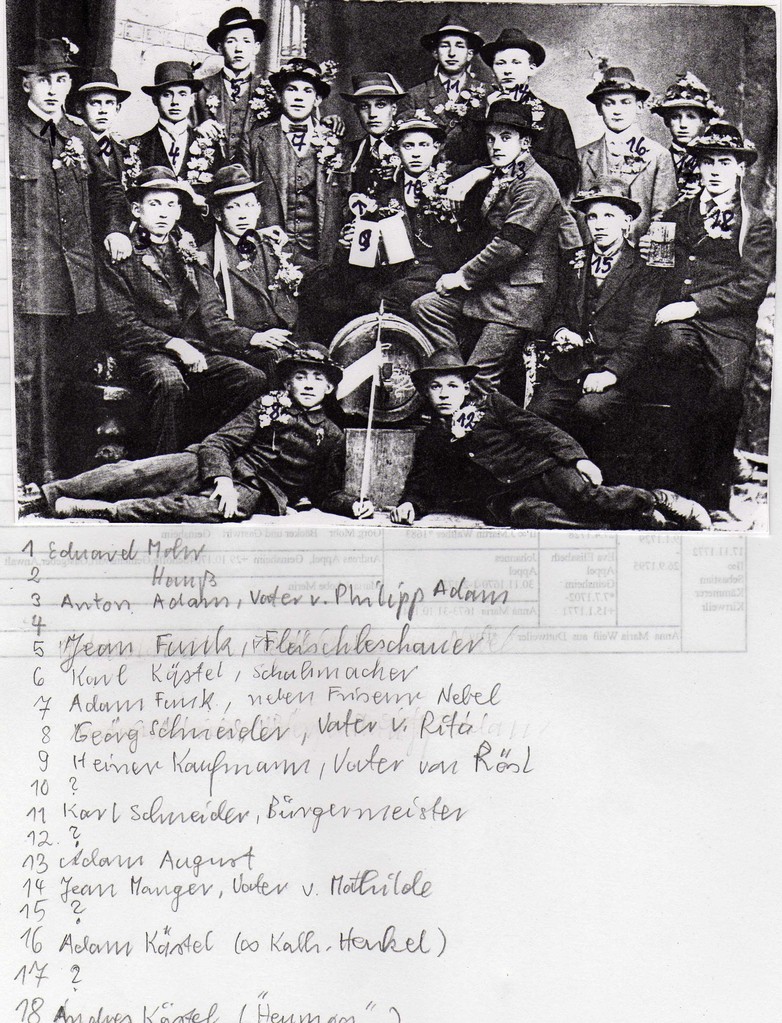 1 Eduard Mohr
2 Hanß
3 Anton Adam, Vater v. Philipp Adam
4
5 Jean Funk, Fleischbeschauer
6 Karl Kästel, Schuhmacher
7 Adam Funk, neben Friseur Nebel
8 Georg Schneider, Vater v. Rita
9 Heiner Kaufmann, Vater von Rösl
10 ?
11 Karl Schneider, Bürgermeister
12. ?
13 Adam August
14 Jean Manger, Vater v. Mathilde
15 ?
16 Adam Kästel (∞ Kath. Henkel)
17 ?
18 Andres Kästel ("Heuman")